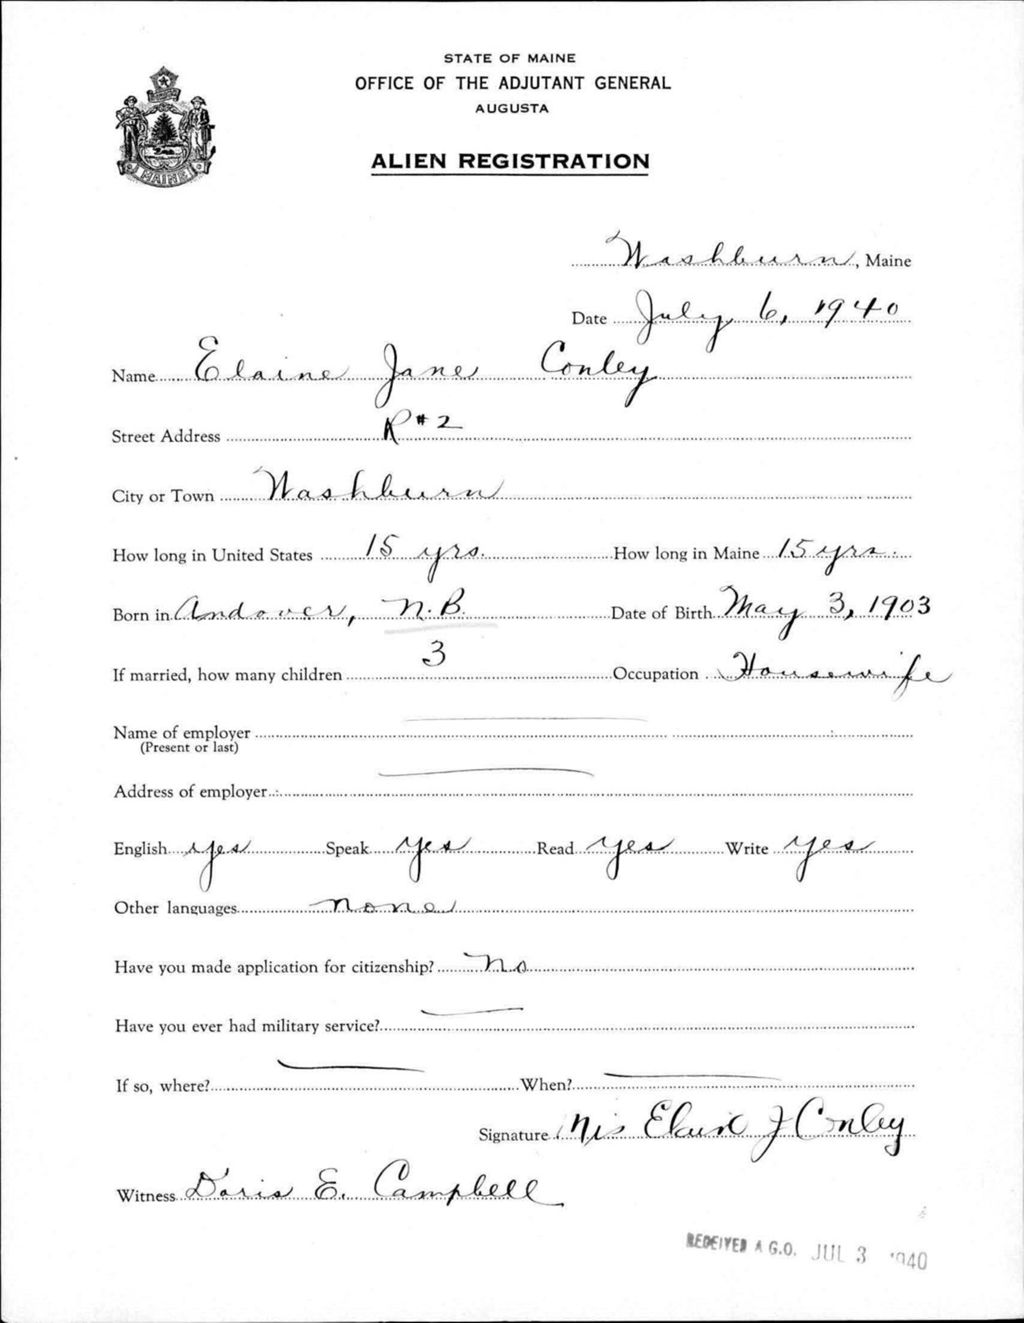 STATE OF MAINE
OFFICE OF THE ADJUTANT GENERAL
AUGUSTA
ALIEN REGISTRATION
MAINE
Washburn, Maine
Date July 6, 1940
Name Elaine Jane Conley
Street Address R#2
City or Town Washburn
How long in United States 15 yrs. How long in Maine 15 yrs.
Born in Andover, N.B. Date of Birth May 3, 1903
If married, how many children 3 Occupation Housewife
Name of employer
(Present or last)
Address of employer
English yes Speak yes Read yes Write yes
Other languages none
Have you made application for citizenship? No
Have you ever had military service?
If so, where? When?
Signature Mrs Elaine J Conley
Witness Doris E. Campbell
RECEIVED A.G.O. JUL 3 1940